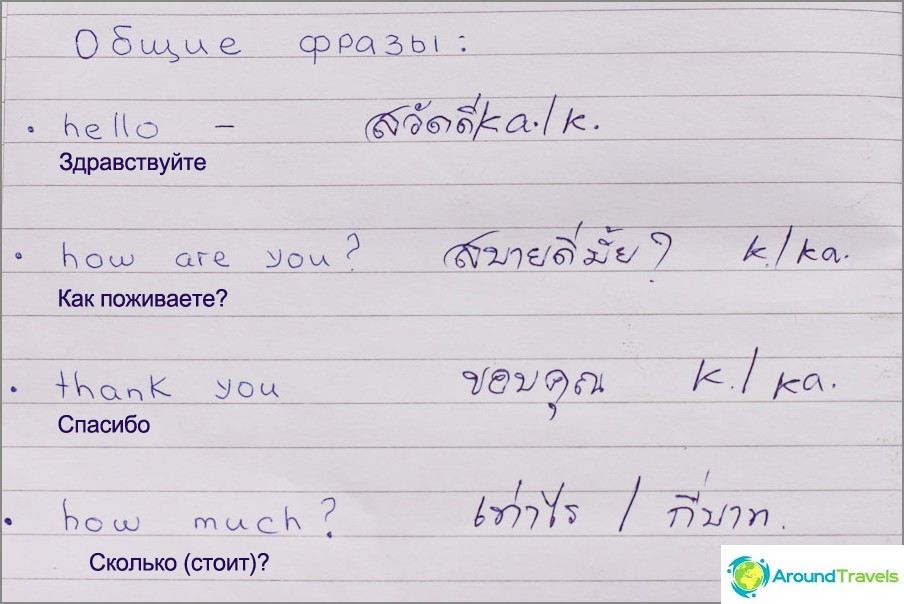 Общие фразы:
• hello – สวัดดีka./k.
Здравствуйте
• how are you? สบายดีมั้ย? k./ka.
Как поживаете?
• thank you ขอบคุณ k./ka.
Спасибо
• how much? เท่าไร / กี่บาท.
Сколько (стоит)?
AroundTravels